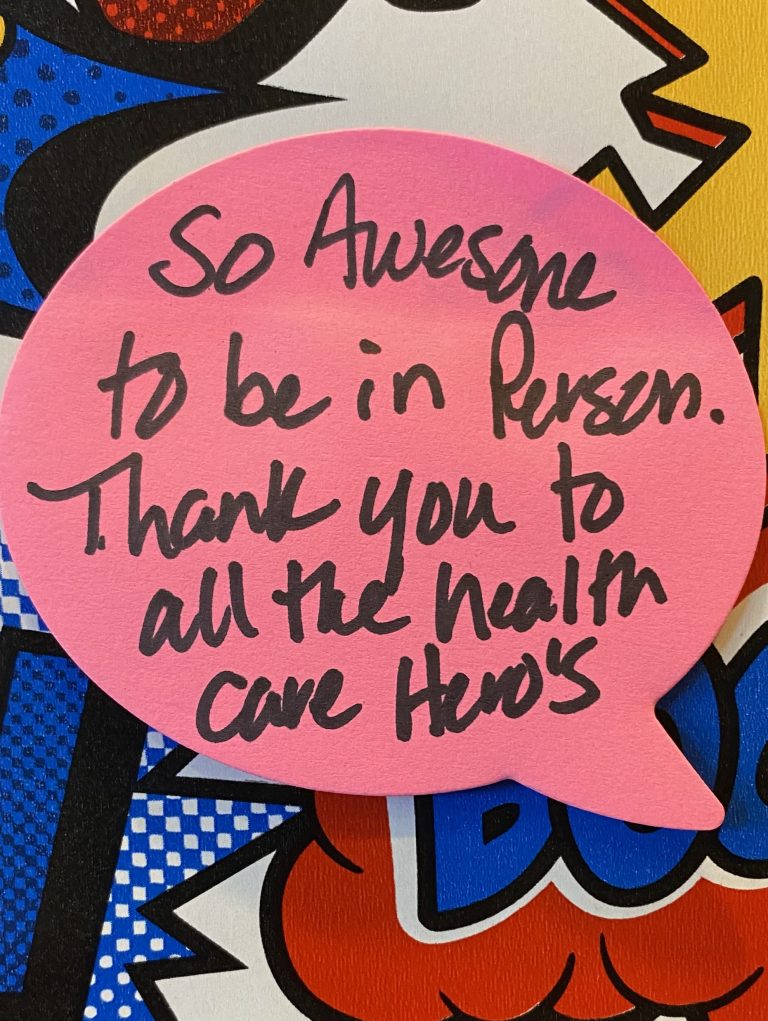 So Awesome
to be in Person.
Thank you to
all the health
care Hero's